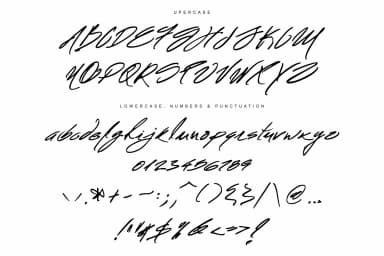 UPERCASE
ABCDEFGHIJKLM
NOPQRSTUVWXYZ
LOWERCASE, NUMBERS & PUNCTUATION
abcdefghijklmnopqrstuvwxyz
0123456789
\,.*+-~:;^(){}/|\@...
!"#$%&<=>?!